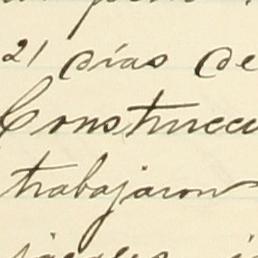 21 días de
Construcci
trabajaron